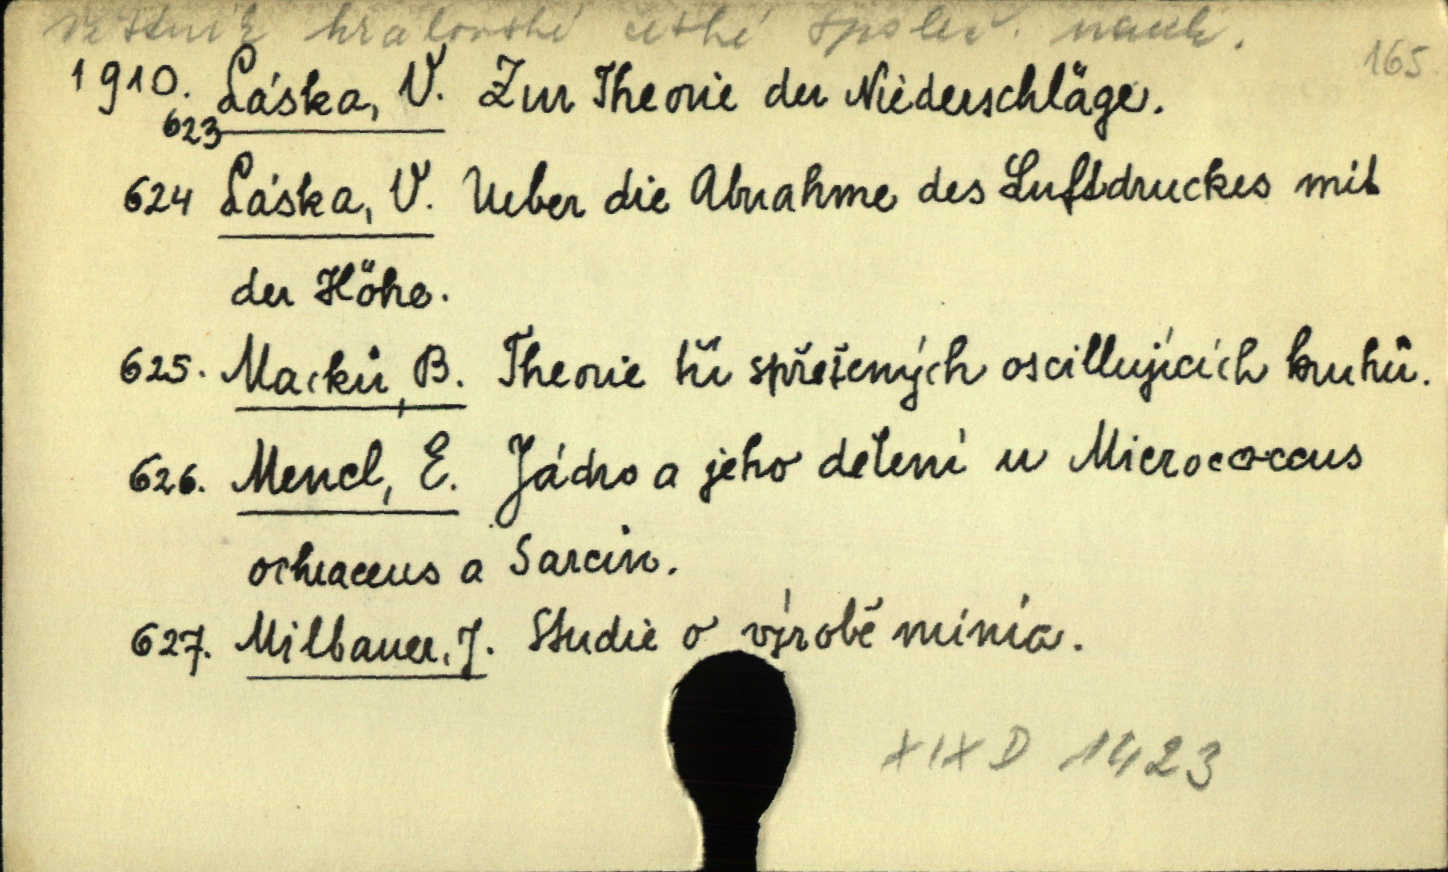 Věstník královské české společ. nauk.
165
1910. Láska, V. Zur Theorie der Niederschläge.
623
624 Láska, V. Ueber die Abnahme des Luftdruckes mit
der Höhe.
625. Macků, B. Theorie tří spřežených oscillujících kruhů.
626. Mencl, E. Jádro a jeho dělení u Micrococcus
ochraceus a Sarcin.
627. Milbauer, J. Studie o výrobě minia.
XIX D 1423